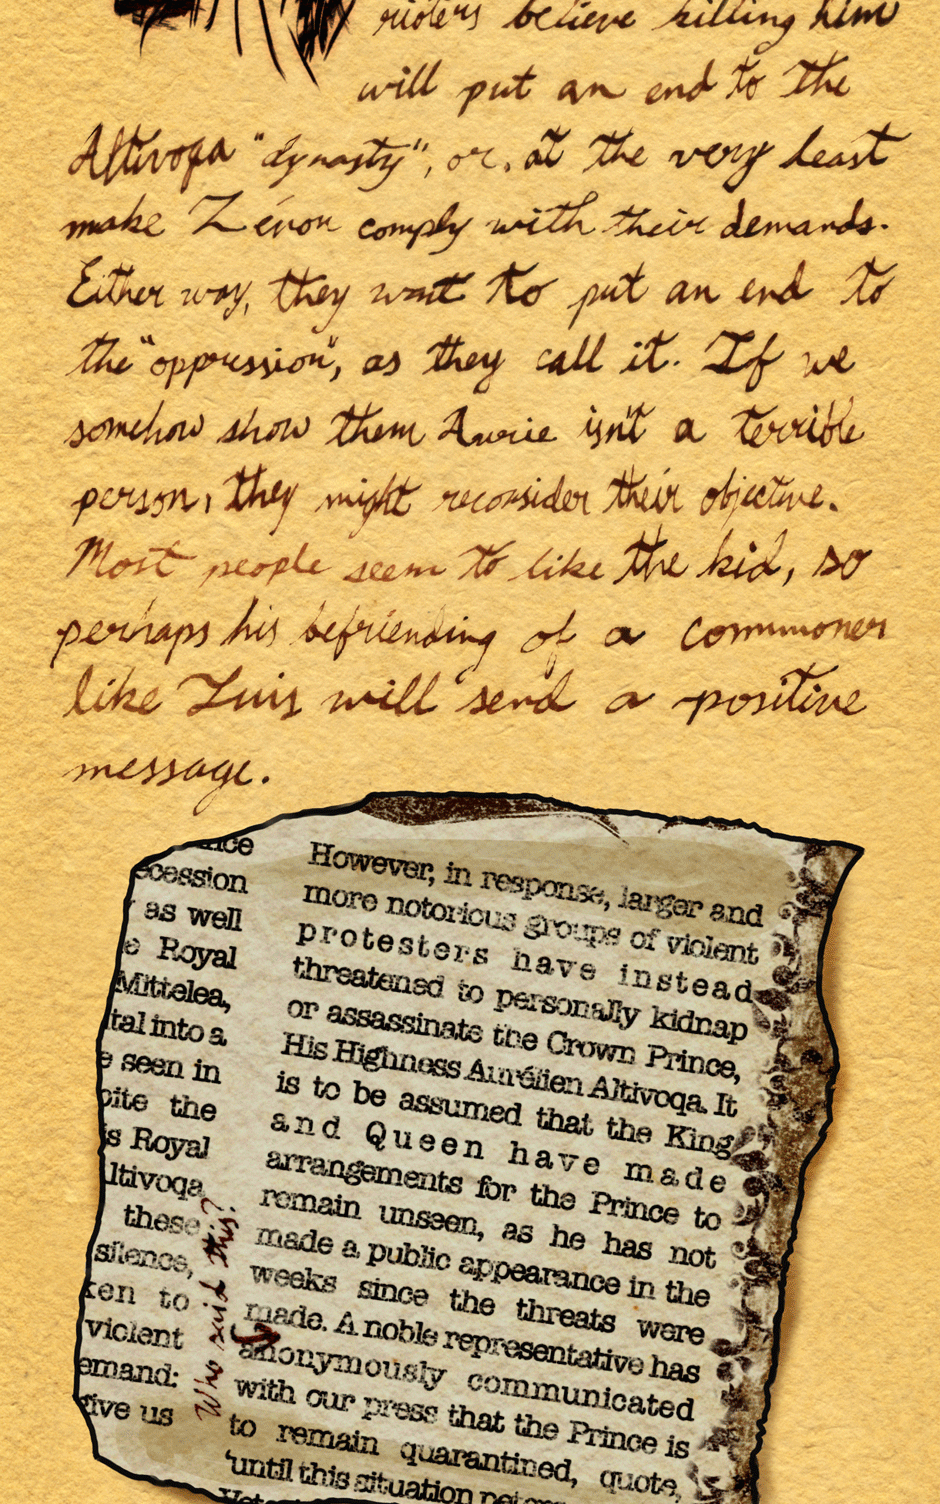 rioters believe killing him
will put an end to the
Altivoqa "dynasty", or, at the very least
make Zévon comply with their demands.
Either way, they want to put an end to
the "oppression", as they call it. If we
somehow show them Aurie isn't a terrible
person, they might reconsider their objective.
Most people seem to like the kid, so
perhaps his befriending of a commoner
like Luis will send a positive
message.
nce
ecession
as well
e Royal
Mittelea,
ital into a
e seen in
pite the
is Royal
ltivoqa
these
silence,
ken to
violent
emand:
give us
Who said this?
However, in response, larger and
more notorious groups of violent
protesters have instead
threatened to personally kidnap
or assassinate the Crown Prince,
His Highness Aurélien Altivoqa. It
is to be assumed that the King
and Queen have made
arrangements for the Prince to
remain unseen, as he has not
made a public appearance in the
weeks since the threats were
made. A noble representative has
anonymously communicated
with our press that the Prince is
to remain quarantined, quote,
'until this situation